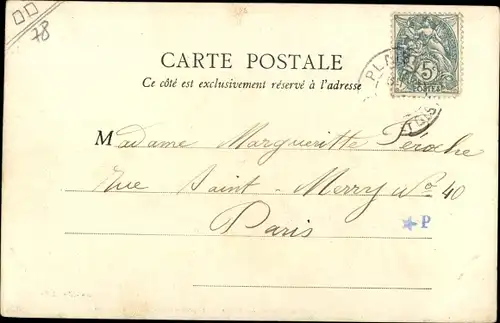 78
CARTE POSTALE
Ce côté est exclusivement réservé à l'adresse
5
POSTES
PLA
Madame Margueritte Péroche
Rue Saint-Merry No 40
Paris
P